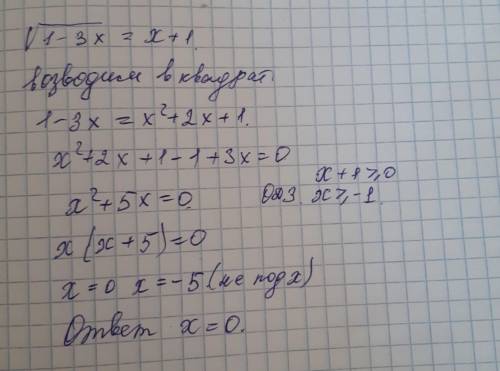 √1-3x = x+1.
возводим в квадрат.
1-3x = x²+2x+1.
x²+2x+1-1+3x=0
x²+5x=0
x+1≥0
ОДЗ x≥-1.
x(x+5)=0
x=0 x=-5 (не подх)
Ответ x=0.